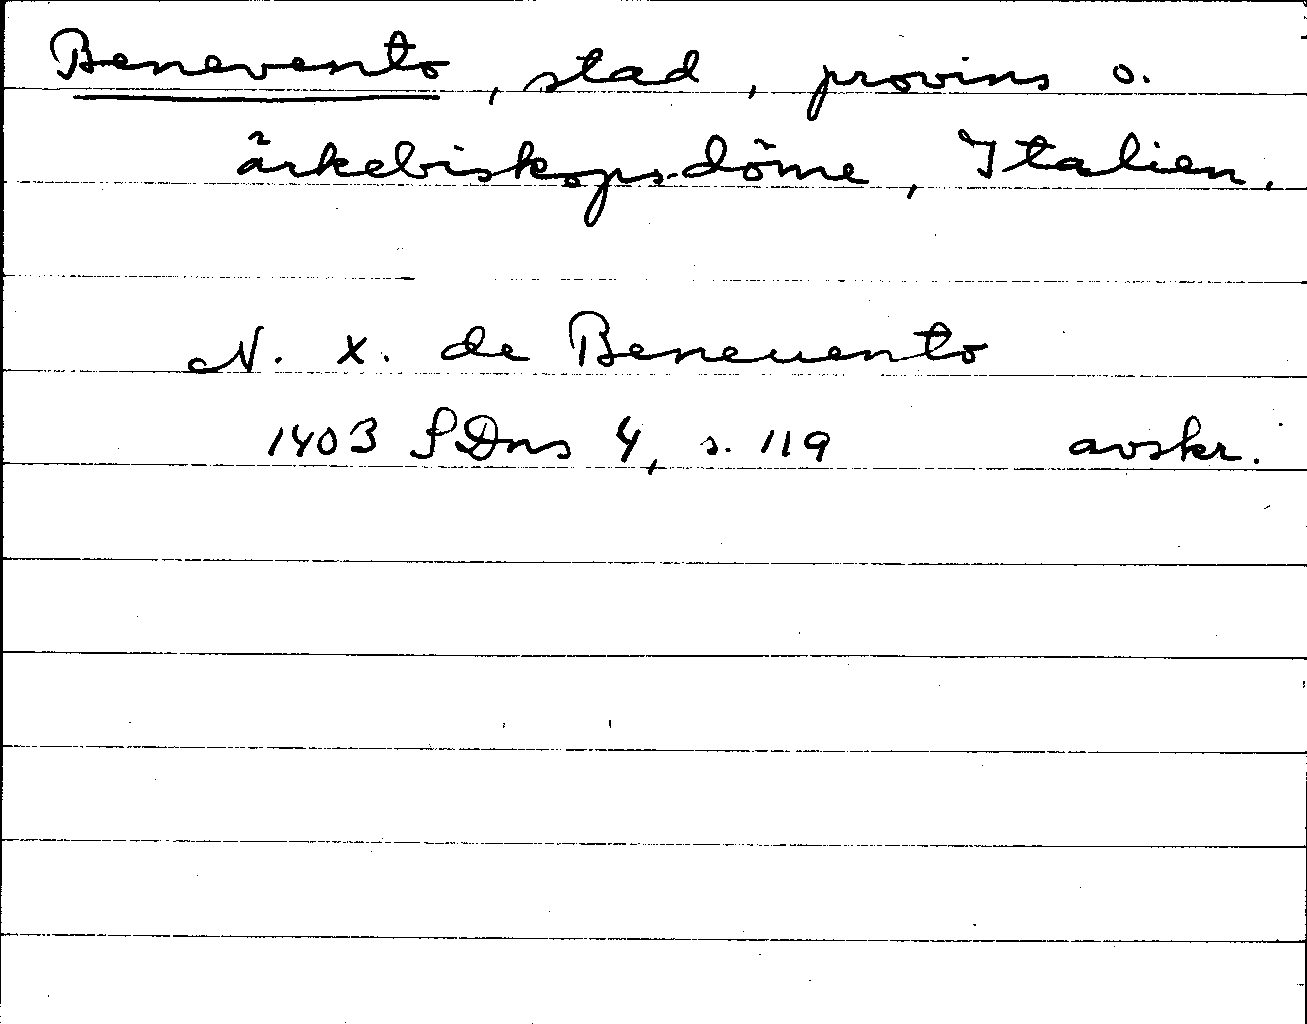 Benevento, stad, provins o.
ärkebiskopsdöme, Italien.
N. X. de Beneuento
1403 SDns 4, s. 119 avskr.